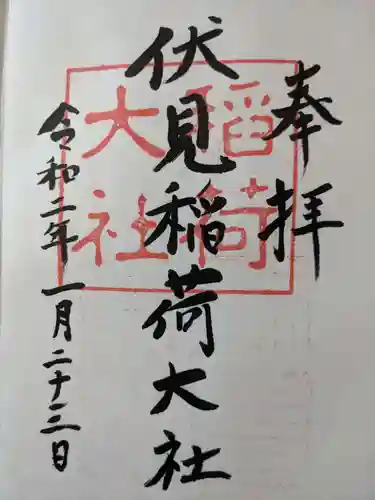 奉拝
伏見稲荷大社
令和二年一月二十三日
稲荷
大社